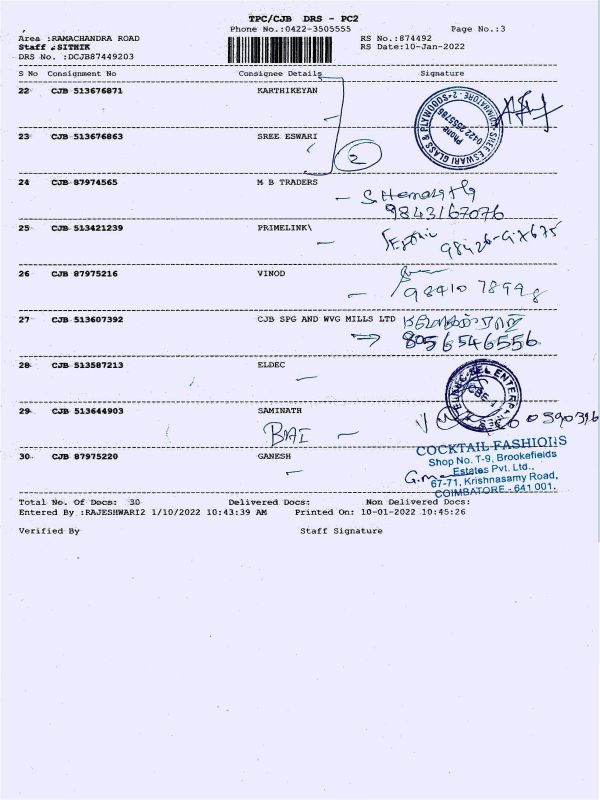 TPC/CJB DRS - PC2
Phone No.:0422-3505555 Page No.:3
Area :RAMACHANDRA ROAD RS No.:874492
Staff :SITHIK RS Date:10-Jan-2022
DRS No. :DCJB87449203
S No Consignment No Consignee Details Signature
22 CJB 513676871 KARTHIKEYAN
23 CJB 513676863 SREE ESWARI
2
SREE ESWARI GLASS & PLYWOODS COIMBATORE - 2. Phone 0422 2355786
24 CJB 87974565 M B TRADERS
9843167076
25 CJB 513421239 PRIMELINK\
26 CJB 87975216 VINOD
27 CJB 513607392 CJB SPG AND WVG MILLS LTD
8056546556
28 CJB 513587213 ELDEC
ENTERPRISES
29 CJB 513644903 SAMINATH
BAI
30 CJB 87975220 GANESH
COCKTAIL FASHIONS
Shop No. T-9, Brookefields
Estates Pvt. Ltd.,
67-71, Krishnasamy Road,
COIMBATORE - 641 001.
Total No. Of Docs: 30 Delivered Docs: Non Delivered Docs:
Entered By :RAJESHWARI2 1/10/2022 10:43:39 AM Printed On: 10-01-2022 10:45:26
Verified By Staff Signature